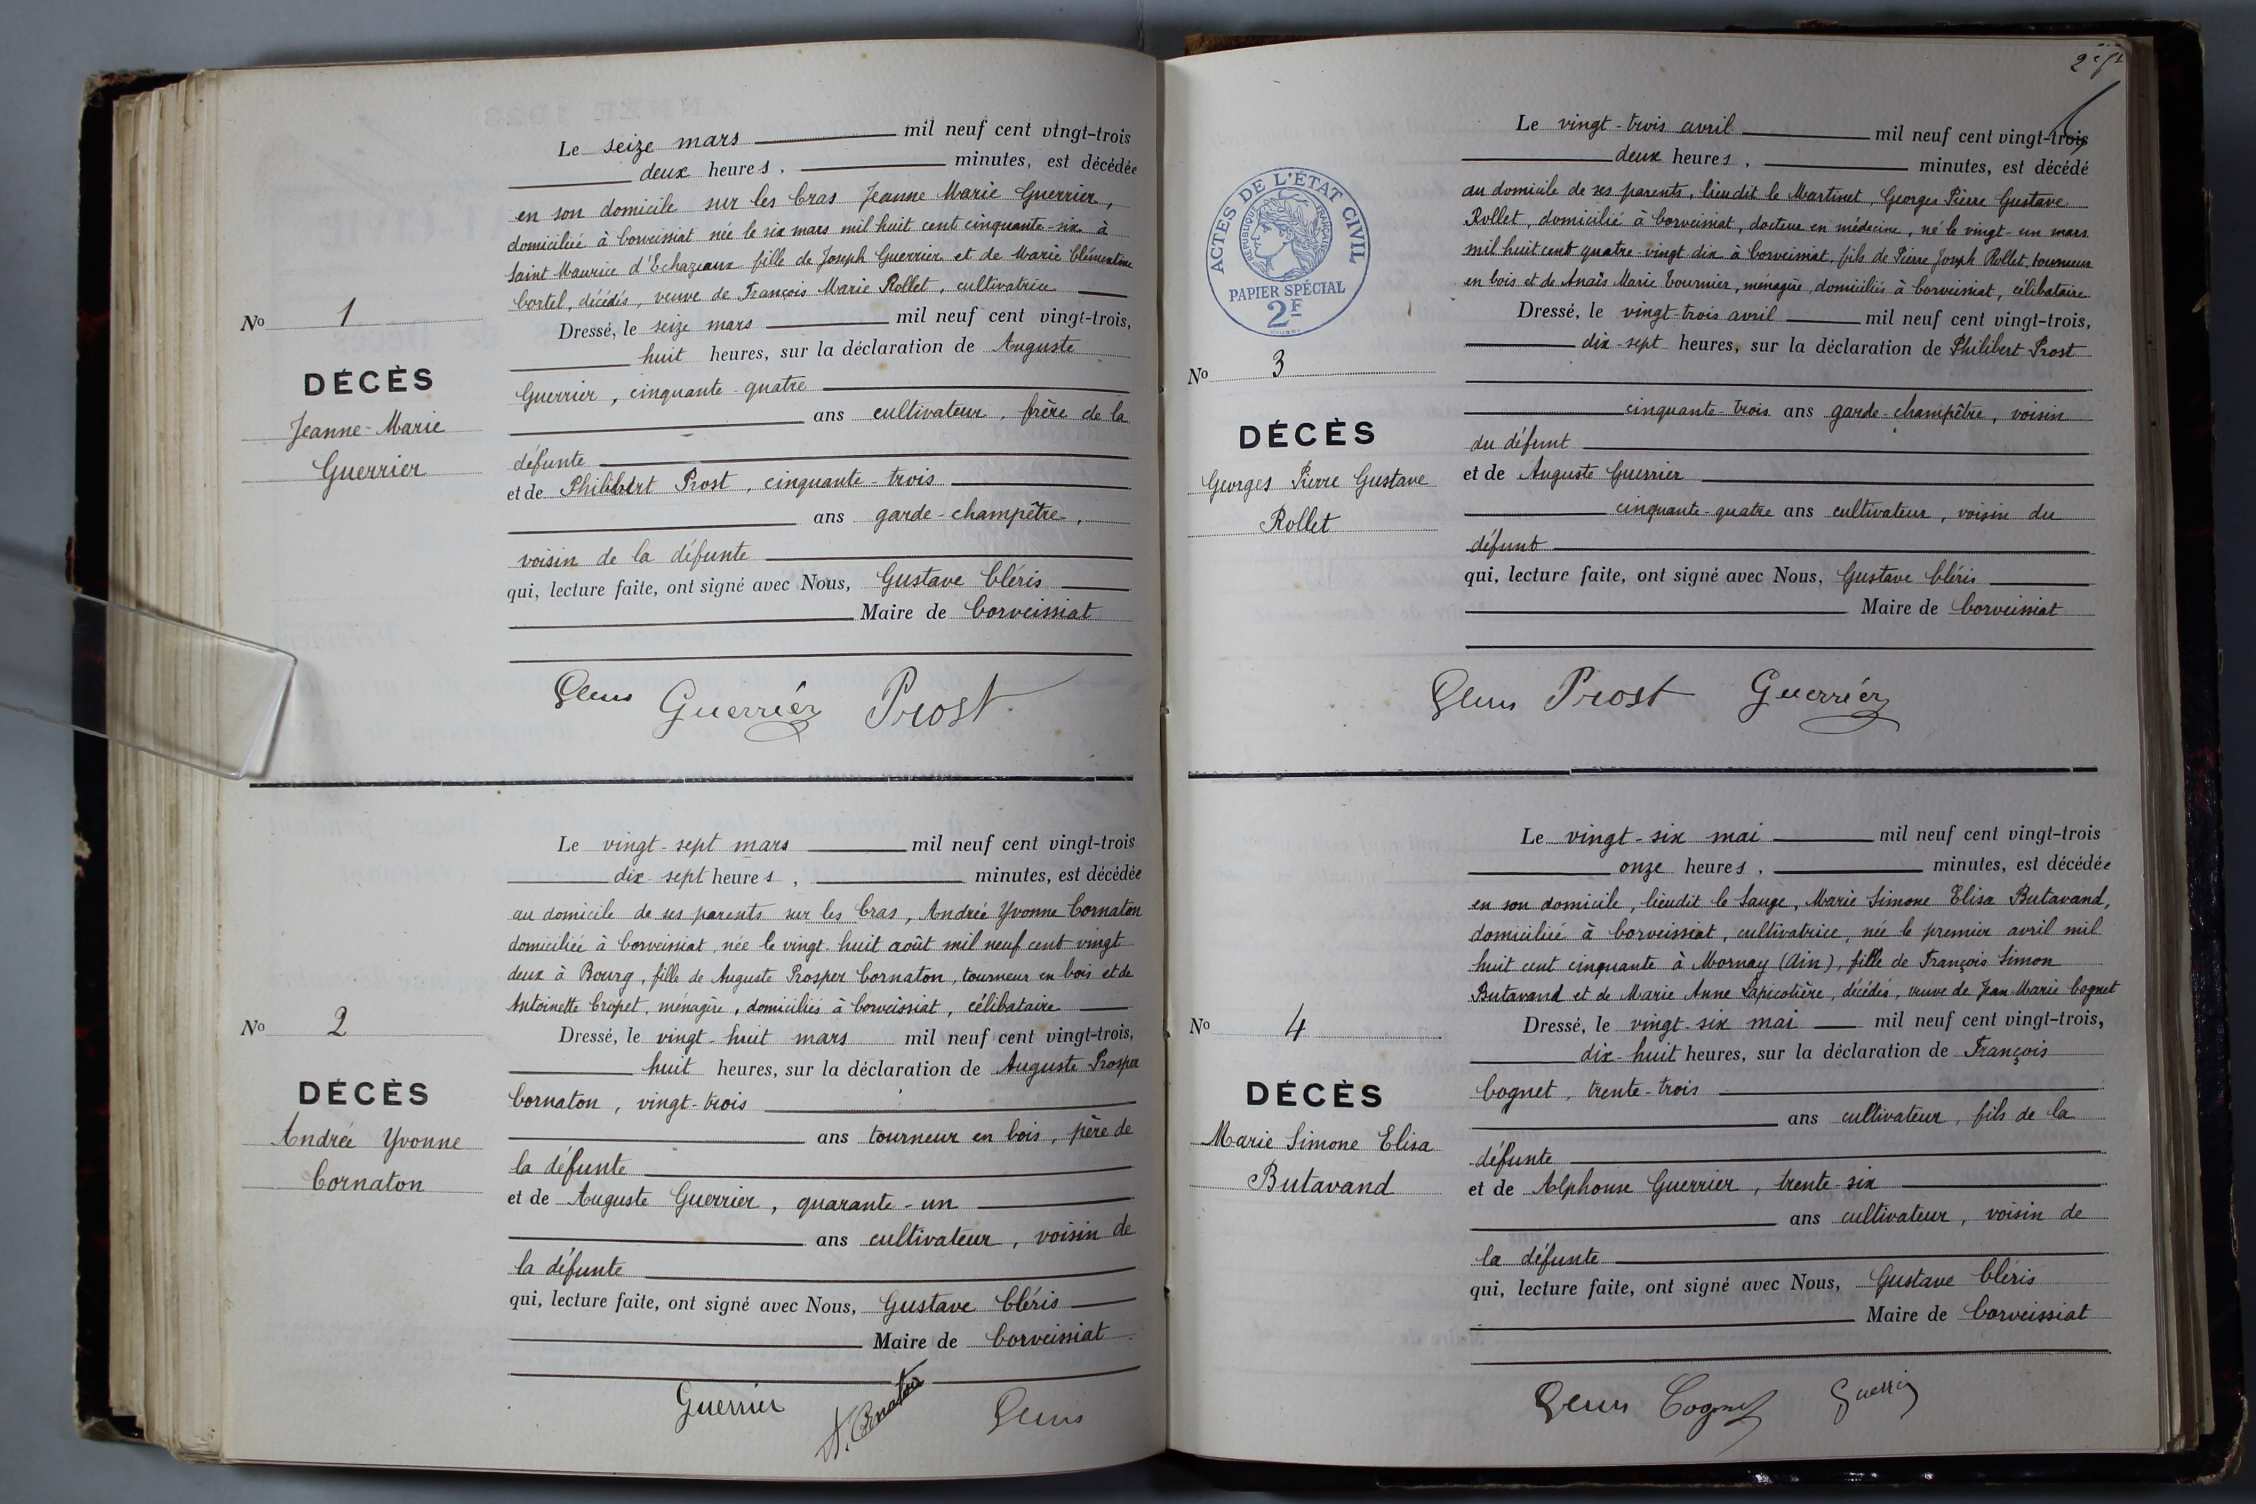 Le seize mars mil neuf cent vingt-trois
deux heures, minutes, est décédée
en son domicile sur les Cras Jeanne Marie Guerrier,
domiciliée à Corveissiat née le six mars mil huit cent cinquante-six à
Saint Maurice d'Echazeaux fille de Joseph Guerrier et de Marie Clémentine
Cortel, décédés, veuve de François Marie Rollet, cultivatrice
No 1
Dressé, le seize mars mil neuf cent vingt-trois,
huit heures, sur la déclaration de Auguste
DÉCÈS
Guerrier, cinquante-quatre
Jeanne-Marie
ans cultivateur, frère de la
Guerrier
défunte
et de Philibert Prost, cinquante-trois
ans garde-champêtre,
voisin de la défunte
qui, lecture faite, ont signé avec Nous, Gustave Cléris
Maire de Corveissiat
Guerriér Prost
Le vingt-sept mars mil neuf cent vingt-trois
dix-sept heures, minutes, est décédée
au domicile de ses parents sur les Cras, Andrée Yvonne Cornaton
domiciliée à Corveissiat, née le vingt-huit août mil neuf cent vingt
deux à Bourg, fille de Auguste Prosper Cornaton, tourneur en bois et de
Antoinette Cropet, ménagère, domiciliés à Corveissiat, célibataire
No 2
Dressé, le vingt-huit mars mil neuf cent vingt-trois,
huit heures, sur la déclaration de Auguste Prosper
DÉCÈS
Cornaton, vingt-trois
Andrée Yvonne
ans tourneur en bois, père de
Cornaton
la défunte
et de Auguste Guerrier, quarante-un
ans cultivateur, voisin de
la défunte
qui, lecture faite, ont signé avec Nous, Gustave Cléris
Maire de Corveissiat
Guerrier A. Cornaton
Le vingt-trois avril mil neuf cent vingt-trois
deux heures, minutes, est décédé
au domicile de ses parents, lieudit le Martinet, Georges Pierre Gustave
Rollet, domicilié à Corveissiat, docteur en médecine, né le vingt-un mars
mil huit cent quatre-vingt dix à Corveissiat, fils de Pierre Joseph Rollet, tourneur
en bois et de Anaïs Marie Tournier, ménagère, domiciliés à Corveissiat, célibataire
ACTES DE L'ÉTAT CIVIL
RÉPUBLIQUE FRANÇAISE
PAPIER SPÉCIAL
2F
No 3
Dressé, le vingt-trois avril mil neuf cent vingt-trois,
dix-sept heures, sur la déclaration de Philibert Prost
cinquante-trois ans garde-champêtre, voisin
DÉCÈS
du défunt
Georges Pierre Gustave
et de Auguste Guerrier
Rollet
cinquante-quatre ans cultivateur, voisin du
défunt
qui, lecture faite, ont signé avec Nous, Gustave Cléris
Maire de Corveissiat
Prost Guerriér
Le vingt-six mai mil neuf cent vingt-trois
onze heures, minutes, est décédée
en son domicile, lieudit le Sauge, Marie Simone Elisa Butavand,
domiciliée à Corveissiat, cultivatrice, née le premier avril mil
huit cent cinquante à Mornay (Ain), fille de François Simon
Butavand et de Marie Anne Lapicotière, décédés, veuve de Jean Marie Cognet
No 4
Dressé, le vingt-six mai mil neuf cent vingt-trois,
dix-huit heures, sur la déclaration de François
DÉCÈS
Cognet, trente-trois
Marie Simone Elisa
ans cultivateur, fils de la
Butavand
défunte
et de Alphonse Guerrier, trente-six
ans cultivateur, voisin de
la défunte
qui, lecture faite, ont signé avec Nous, Gustave Cléris
Maire de Corveissiat
Cognet